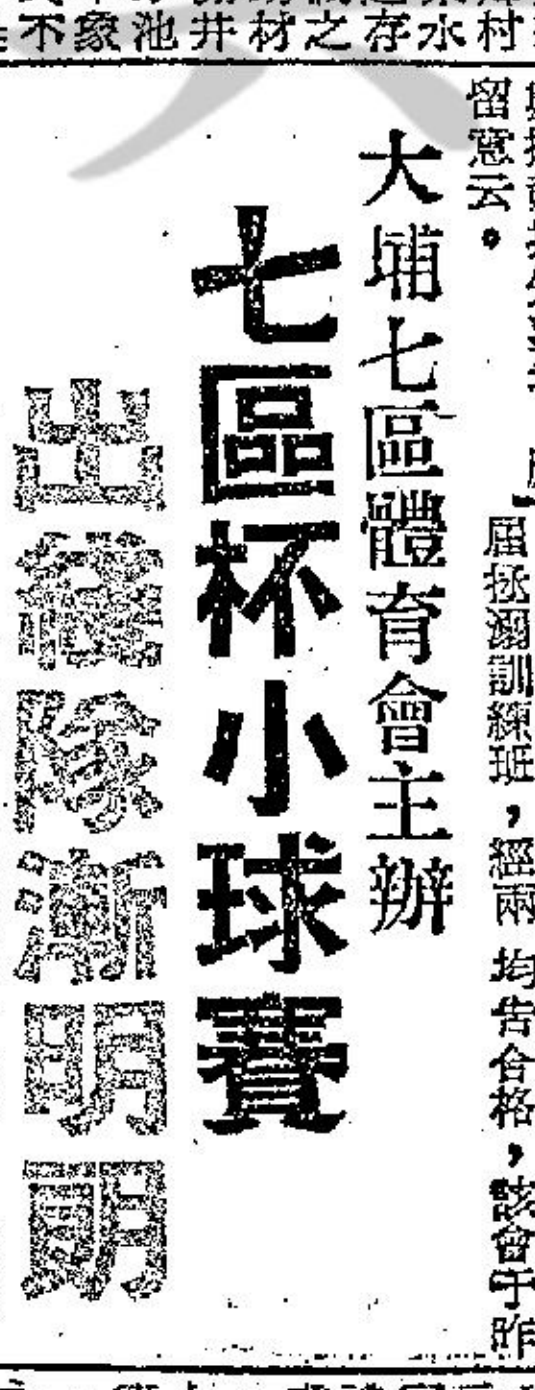 村水存之材井池象不
留意云。
屆拯溺訓練班，經兩
均告合格，該會于昨
大埔七區體育會主辦
七區杯小球賽
出綫隊漸明朗